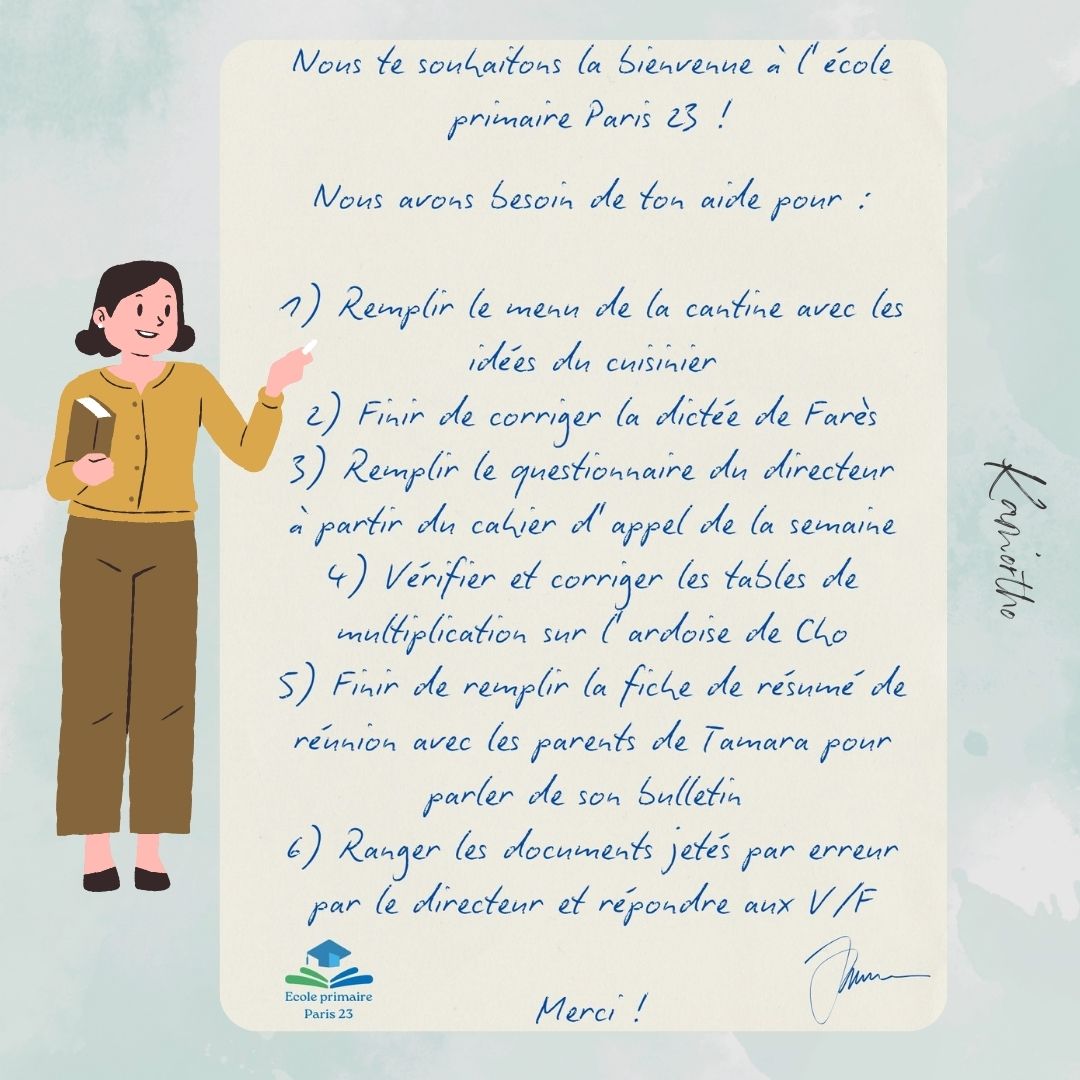 Nous te souhaitons la bienvenue à l'école
primaire Paris 23 !
Nous avons besoin de ton aide pour :
1) Remplir le menu de la cantine avec les
idées du cuisinier
2) Finir de corriger la dictée de Farès
3) Remplir le questionnaire du directeur
à partir du cahier d'appel de la semaine
4) Vérifier et corriger les tables de
multiplication sur l'ardoise de Cho
5) Finir de remplir la fiche de résumé de
réunion avec les parents de Tamara pour
parler de son bulletin
6) Ranger les documents jetés par erreur
par le directeur et répondre aux V/F
Merci !
Ecole primaire
Paris 23
Kamiortho